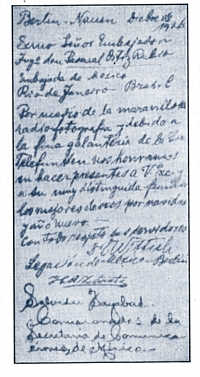 Berlin - Nauen Dicbre de
1926
Señor Embajador
Ingº don Pascual Ortiz Rubio
Embajada de Mexico
Rio de Janeiro - Brasil
Por medio de la maravillosa
radiofotografia y debido a
la fina galanteria de la
Telefunken nos honramos
en hacer presentes a V. Exc. y
a su muy distinguida familia
los mejores deseos por navidad
y año nuevo
Con todo respeto sus servidores
Legacion de Mexico - Berlin
Salvador
Comisionados de la
Secretaria de Comunica
ciones de Mexico